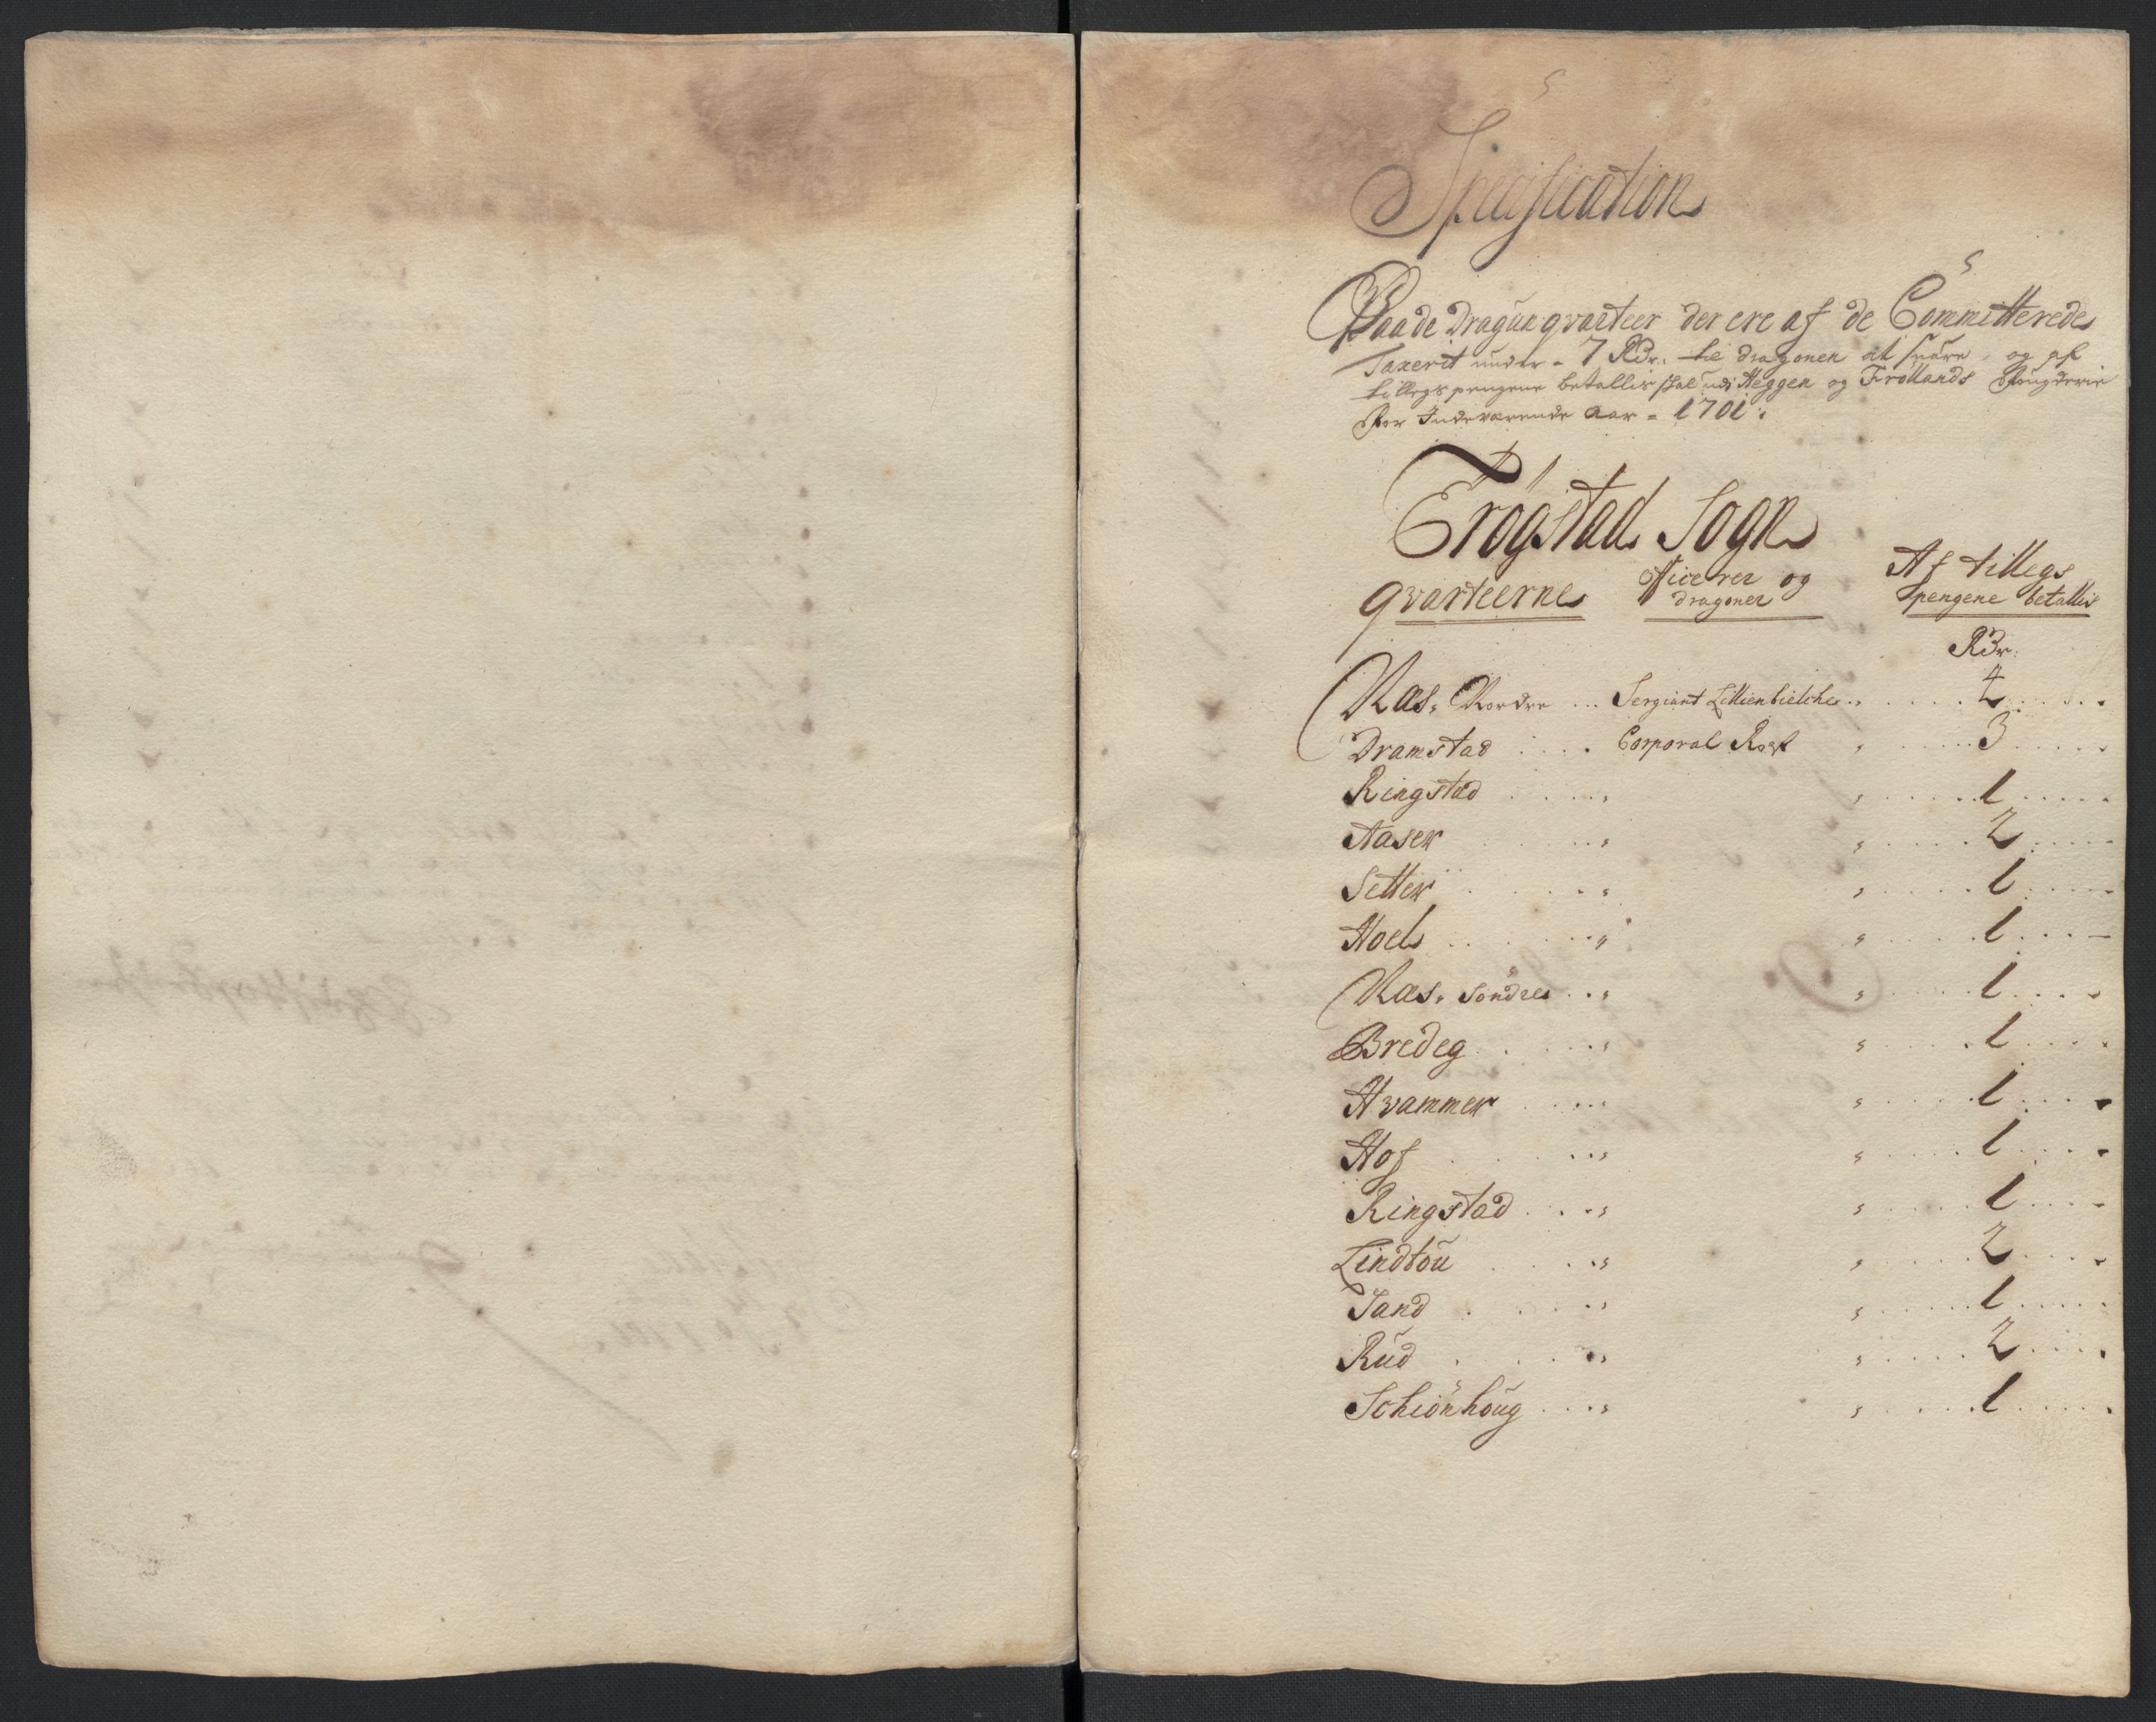 Specification
Paa de Dragun qvarteer der ere af de Committerede
Taxerit under - 7 Rdr. til dragonen at svare, og af
tillegs pengene betallis skal udi Heggen og Frøllands fougderie
for Indeværende Aar - 1701.
Trøgstad Sogn
qvarteerne Officerer og dragoner Af tillegs pengene betallis
Rdr.
Næs, Nordre ... Sergiant Lillienbielche .. 4
Dramstad .... Corporal Rost " 3
Ringstad .... " " 1
Aaser .... " " 2
Setter .... " " 1
Hoel .... " " 1
Næs, Søndre .. " " 1
Bredeg .... " " 1
Hvammer .... " 1
Hof .... " " 1
Ringstad .... " " 1
Lindtou .... " " 2
Sand .... " " 1
Rud .... " " 2
Schiønhoug .... " " 1